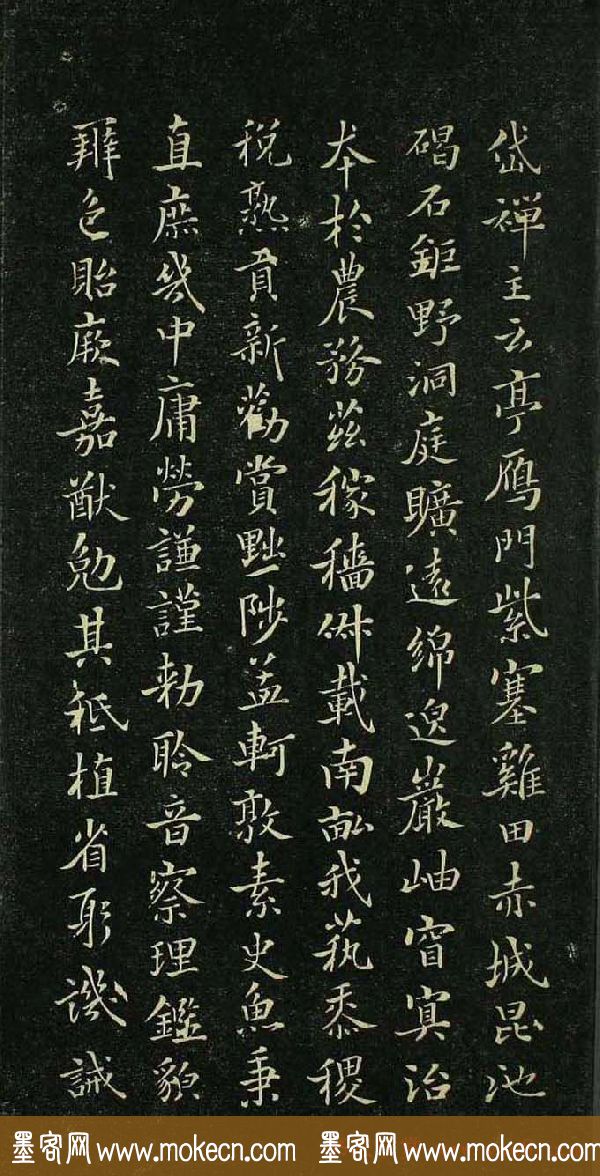 岱禪主云亭鴈門紫塞雞田赤城昆池
碣石鉅野洞庭曠遠綿邈巖岫窅冥治
本於農務茲稼穡俶載南畝我蓺黍稷
稅熟貢新勸賞黜陟孟軻敦素史魚秉
直庶幾中庸勞謙謹勑聆音察理鑑貌
辨色貽厥嘉猷勉其祗植省躬譏誡
墨客网 www.mokecn.com 墨客网 www.mokecn.com